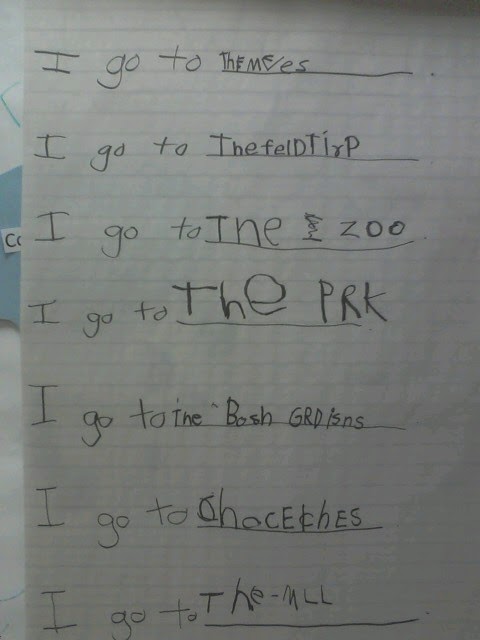 I go to ThE MVes
I go to ThefelDTirP
I go to The ZOO
I go to ThE PRK
I go to The Bosh GRDisns
I go to ChocEches
I go to The-MLL
Co